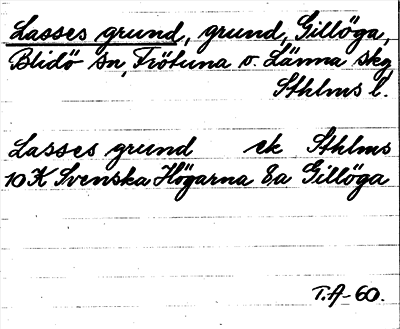 Lasses grund, grund, Gillöga,
Blidö sn, Frötuna o. Länna skg
Sthlms l.
Lasses grund ek Sthlms
10K Svenska Högarna 8a Gillöga
T.A-60.